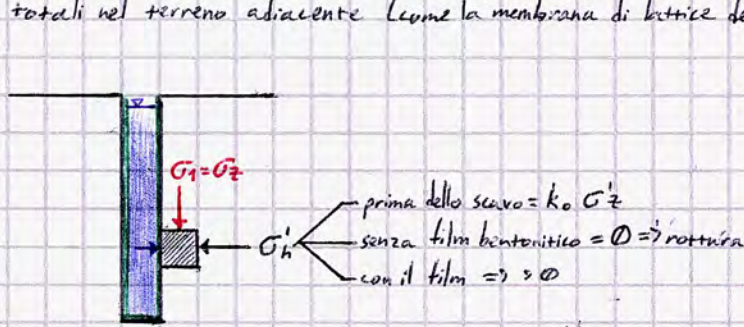 totali nel terreno adiacente (come la membrana di lattice de
σ1=σz
prima dello scavo = k0 σ'z
σ'h senza film bentonitico = 0 => rottura
con il film => > 0